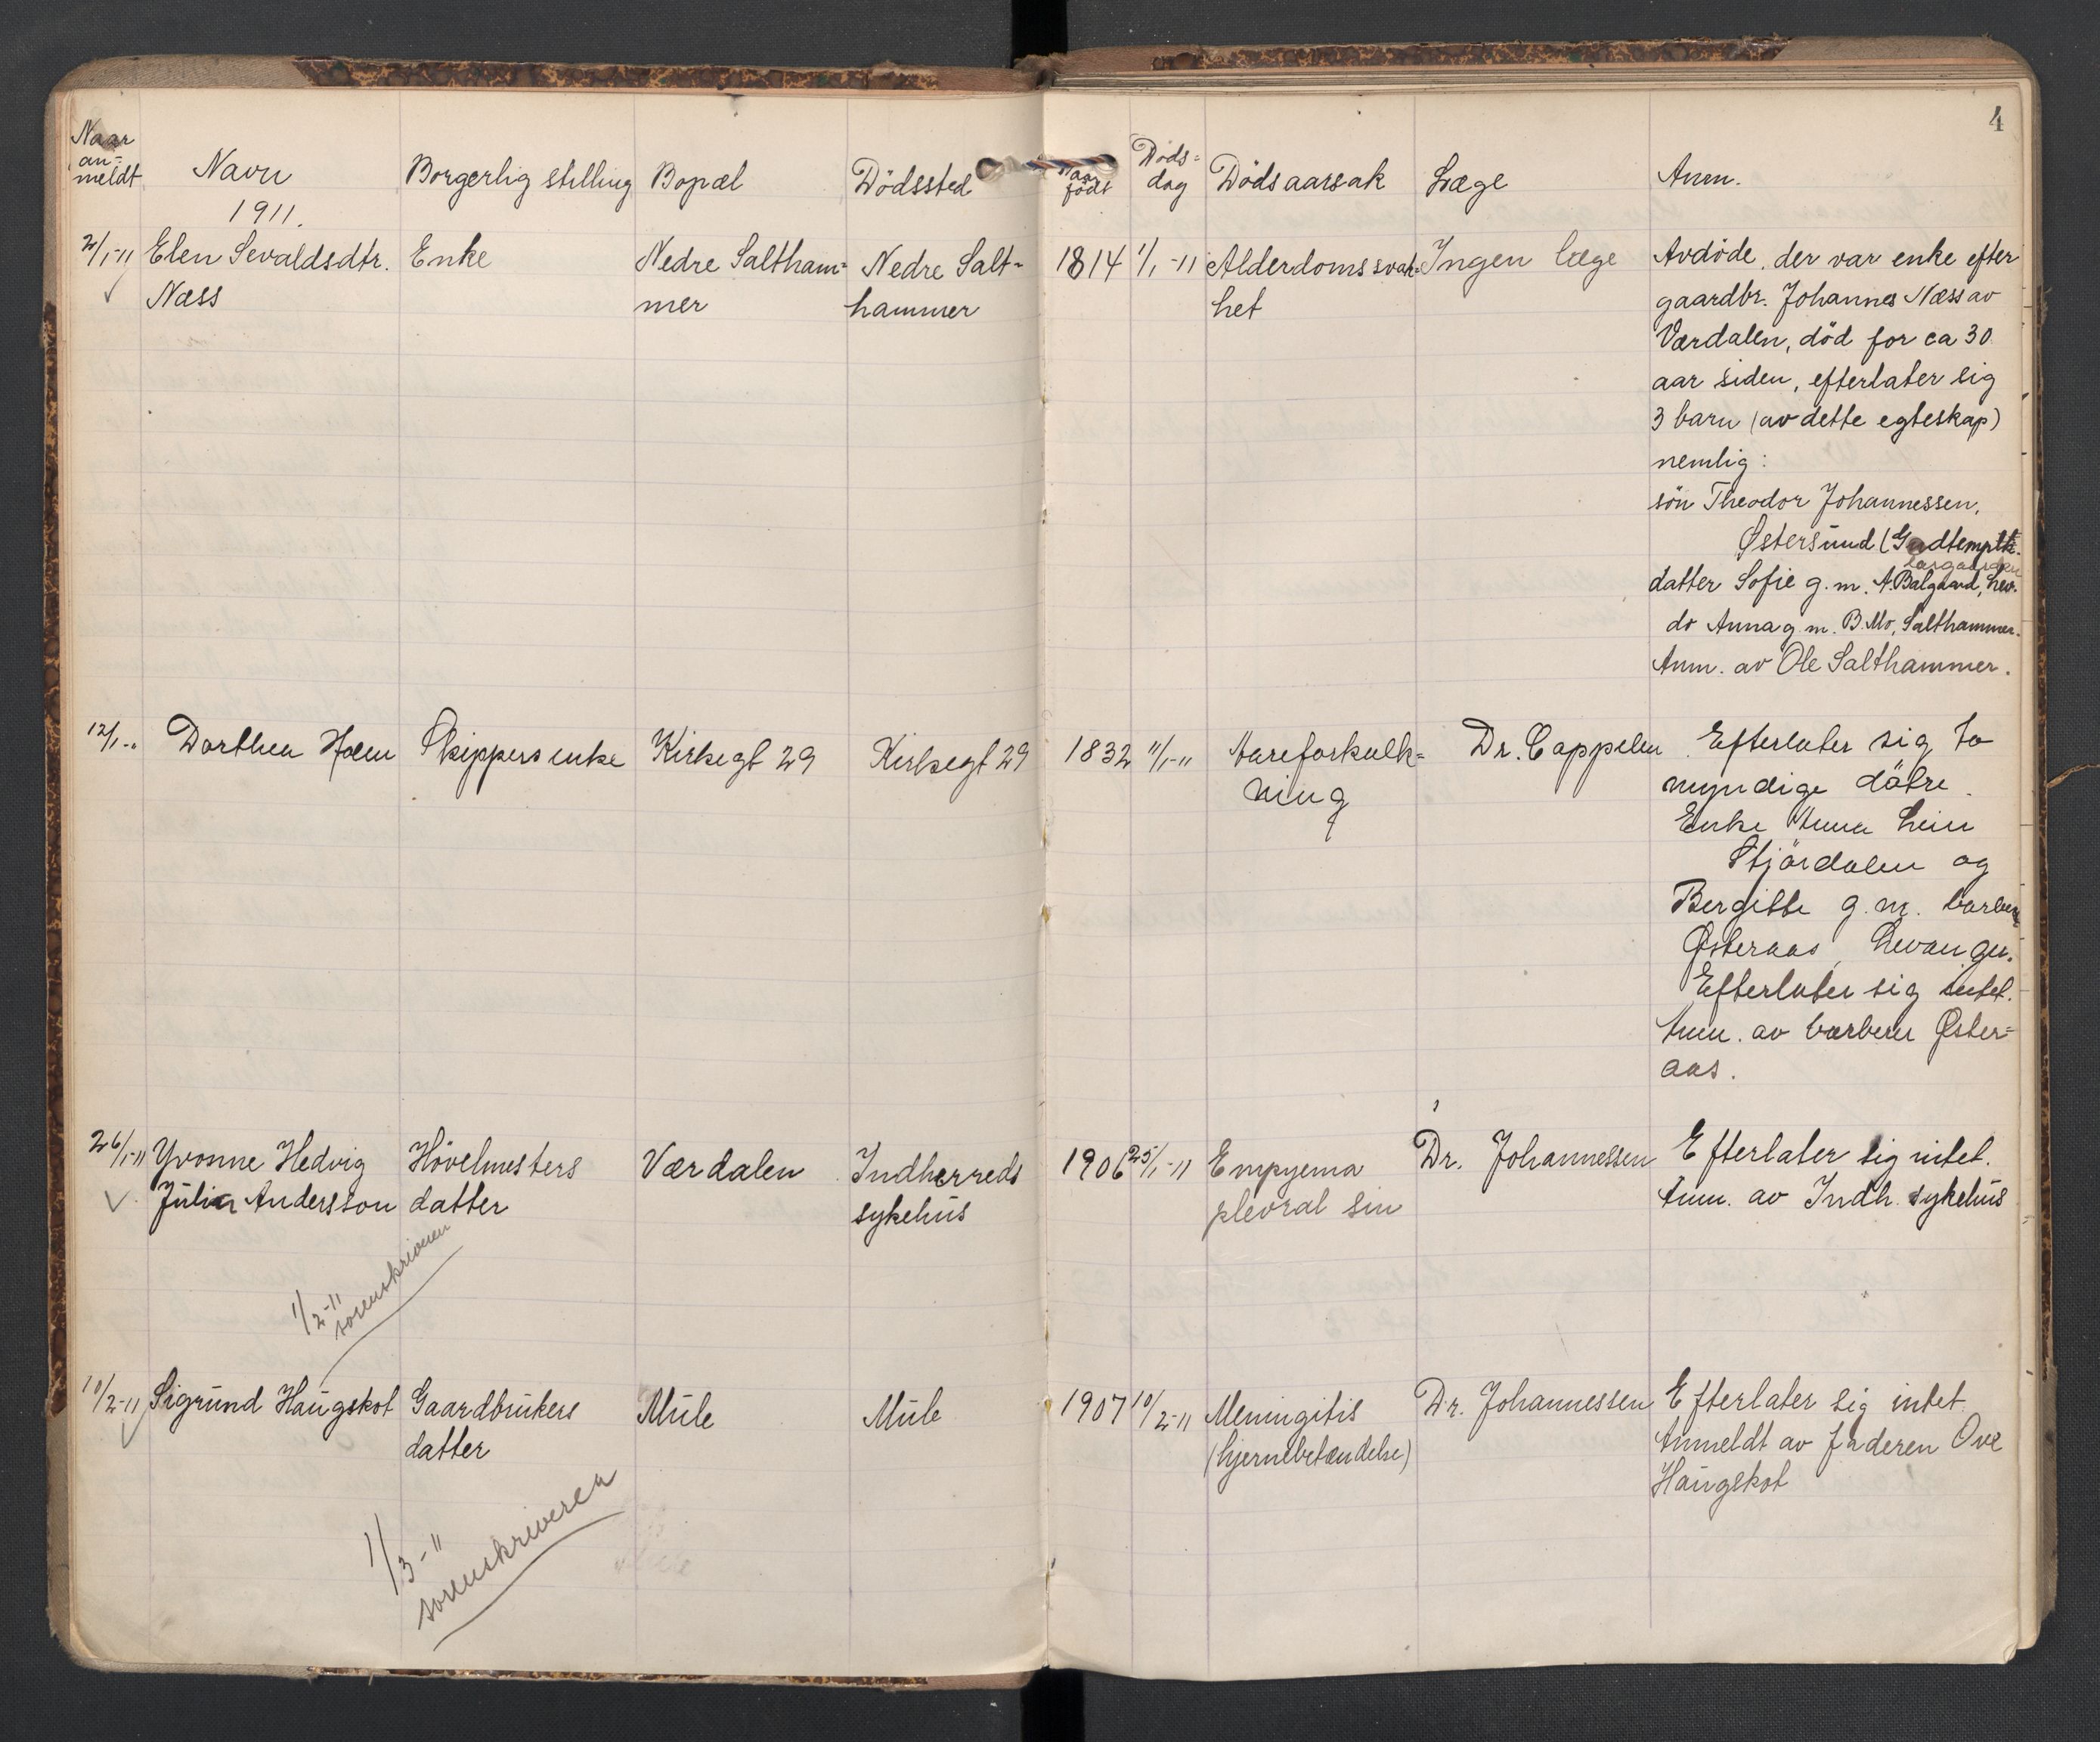 4
Naar an=meldt Navn Borgerlig stilling Bopæl Dödssted Naar födt Döds=dag Dödsaarsak Læge Anm.
1911.
2/1-11 Elen Sevaldsdtr. Enke Nedre Saltham= Nedre Salt- 1814 1/1-11 Alderdomssvak= Ingen læge Avdöde, der var enke efter
Næss mer hammer het gaardbr. Johannes Næss av
Værdalen, död for ca 30
aar siden, efterlater sig
3 barn (av dette egteskap)
nemlig:
sön Theodor Johannessen,
Østersund (Godtempl.
datter Sofie g.m. A. Balgaard, Lev.
do Anna g.m. B. Mo, Salthammer.
Anm. av Ole Salthammer.
12/1-" Dorthea Holm Skippersenke Kirkegt 29 Kirkegt 29 1832 11/1-11 Aareforkalk= Dr. Cappelen Efterlater sig to
ning myndige dötre.
Enke Anna Lein
Stjördalen og
Bergitte g.m. barber
Østeraas, Levanger.
Efterlater sig intet.
Anm. av barberer Øster=
aas.
26/1-11 Yvonne Hedvig Hövelmesters Værdalen Indherreds 1906 25/1-11 Empyema Dr. Johannessen Efterlater sig intet.
Julia Andersson datter sykehus plevral sin Anm. av Indh. sykehus
1/2-11
sorenskriveren
10/2-11 Sigrund Haugskot Gaardbrukers Mule Mule 1907 10/2-11 Meningitis Dr. Johannessen Efterlater sig intet
datter (hjernebetændelse) Anmeldt av faderen Ove
Haugskot
1/3-11
sorenskriveren